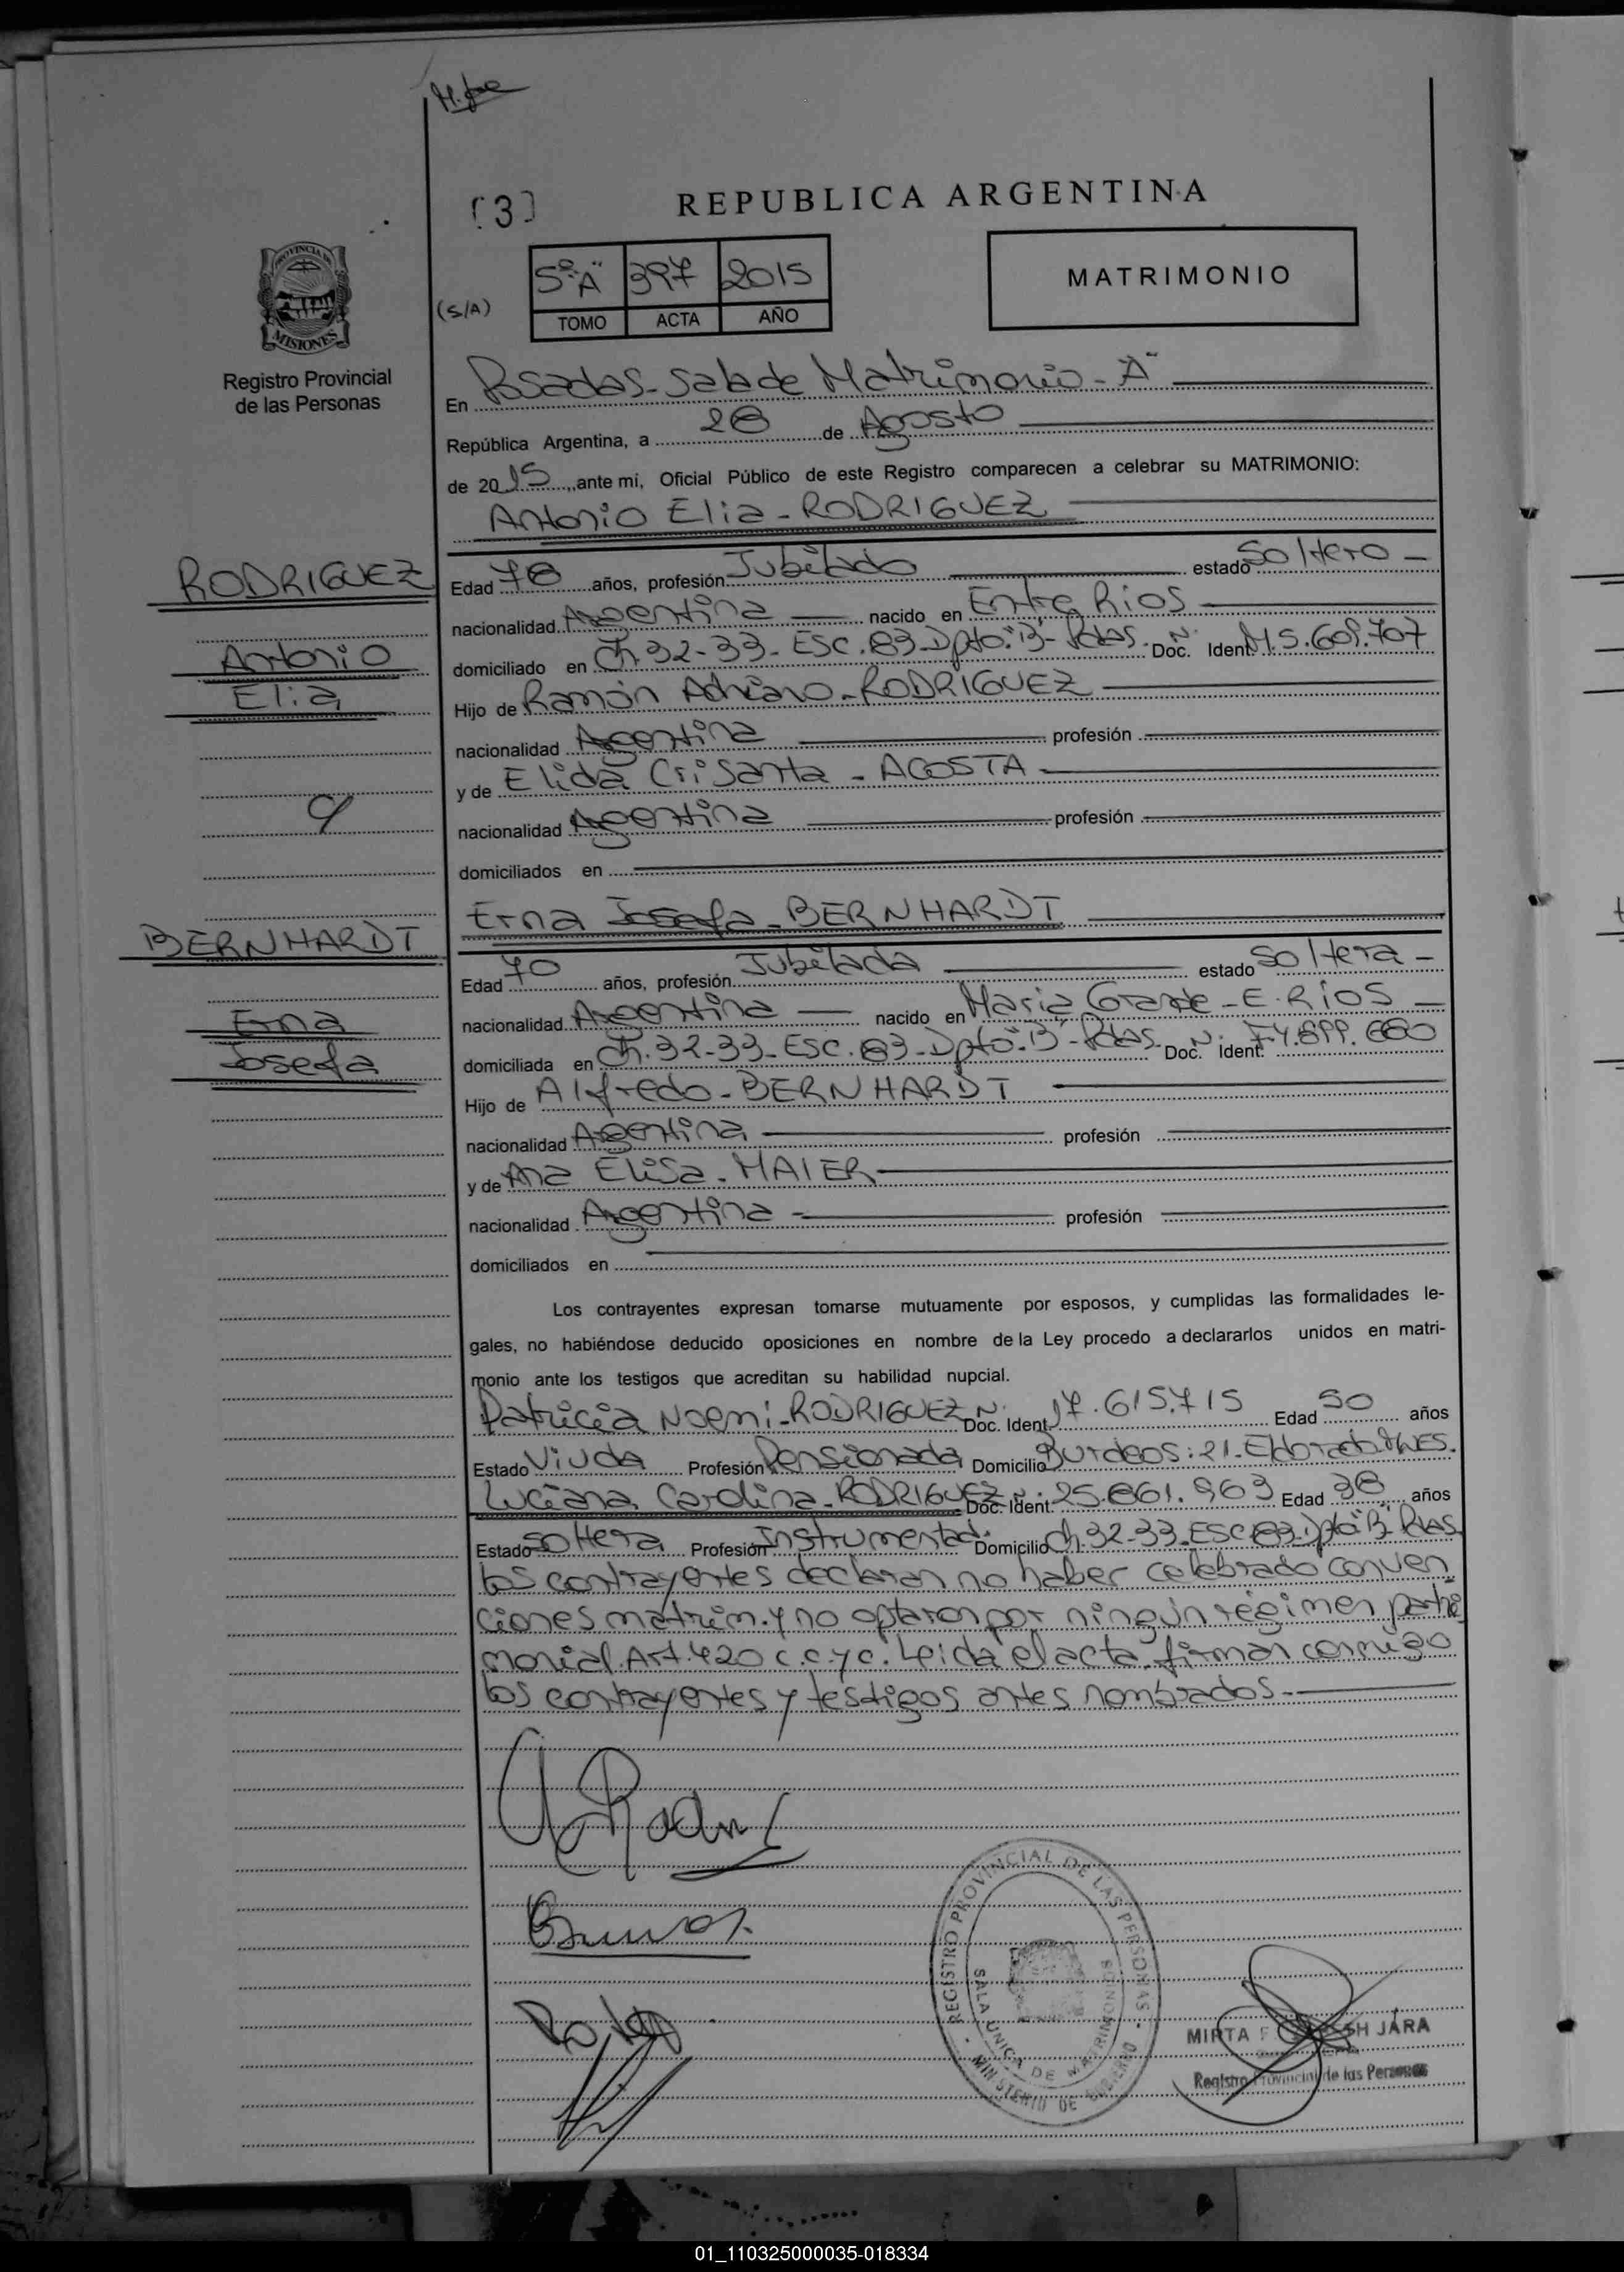 [3]
REPUBLICA ARGENTINA
PROVINCIA DE
MISIONES
Registro Provincial
de las Personas
(S/A)
5º "A" 397 2015
TOMO ACTA AÑO
MATRIMONIO
En Posadas - Sala de Matrimonio - "A"
República Argentina, a 28 de Agosto
de 2015, ante mi, Oficial Público de este Registro comparecen a celebrar su MATRIMONIO:
Antonio Elia - RODRIGUEZ
RODRIGUEZ
Antonio
Elia
Edad 78 años, profesión Jubilado estado Soltero -
nacionalidad Argentina nacido en Entre Rios
domiciliado en Ch. 32-33- Esc. 83- Dpto. "B"- Pdas. Doc. N: Ident. M.5.609.707
Hijo de Ramón Adriano - RODRIGUEZ
nacionalidad Argentina profesión
y de Elida Crisanta - ACOSTA
nacionalidad Argentina profesión
domiciliados en
y
Erna Josefa - BERNHARDT
BERNHARDT
Erna
Josefa
Edad 70 años, profesión Jubilada estado Soltera -
nacionalidad Argentina nacido en Maria Grande - E. Rios
domiciliada en Ch. 32-33- Esc. 83- Dpto. "B"- Pdas. Doc. N: Ident. F4.899.680
Hijo de Alfredo - BERNHARDT
nacionalidad Argentina profesión
y de Ana Elisa - MAIER
nacionalidad Argentina profesión
domiciliados en
Los contrayentes expresan tomarse mutuamente por esposos, y cumplidas las formalidades le-
gales, no habiéndose deducido oposiciones en nombre de la Ley procedo a declararlos unidos en matri-
monio ante los testigos que acreditan su habilidad nupcial.
Patricia Noemi - RODRIGUEZ Doc. N: Ident. 17.615.715 Edad 50 años
Estado Viuda Profesión Pensionada Domicilio Burdeos: 21- Eldorado.
Luciana Carolina - RODRIGUEZ Doc. N: Ident. 25.861.963 Edad 38 años
Estado Soltera Profesión Instrumentad. Domicilio Ch. 32-33- Esc 83- Dpto "B" Pdas
los contrayentes declaran no haber celebrado conven
ciones matrim. y no optaron por ningún régimen patri
monial. Art. 420 c.c. y c. Leida el acta, firman conmigo
los contrayentes y testigos antes nombrados -
REGISTRO PROVINCIAL DE LAS PERSONAS
SALA UNICA DE MATRIMONIOS
MINISTERIO DE GOBIERNO
MIRTA JARA
Registro Provincial de las Personas
01_110325000035-018334